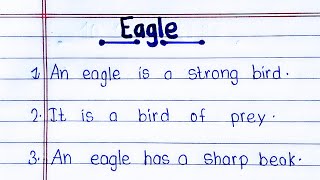 Eagle
1. An eagle is a strong bird.
2. It is a bird of prey.
3. An eagle has a sharp beak.